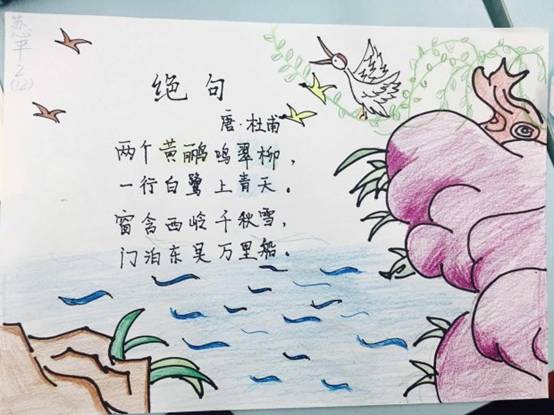 绝句
唐·杜甫
两个黄鹂鸣翠柳，
一行白鹭上青天。
窗含西岭千秋雪，
门泊东吴万里船。